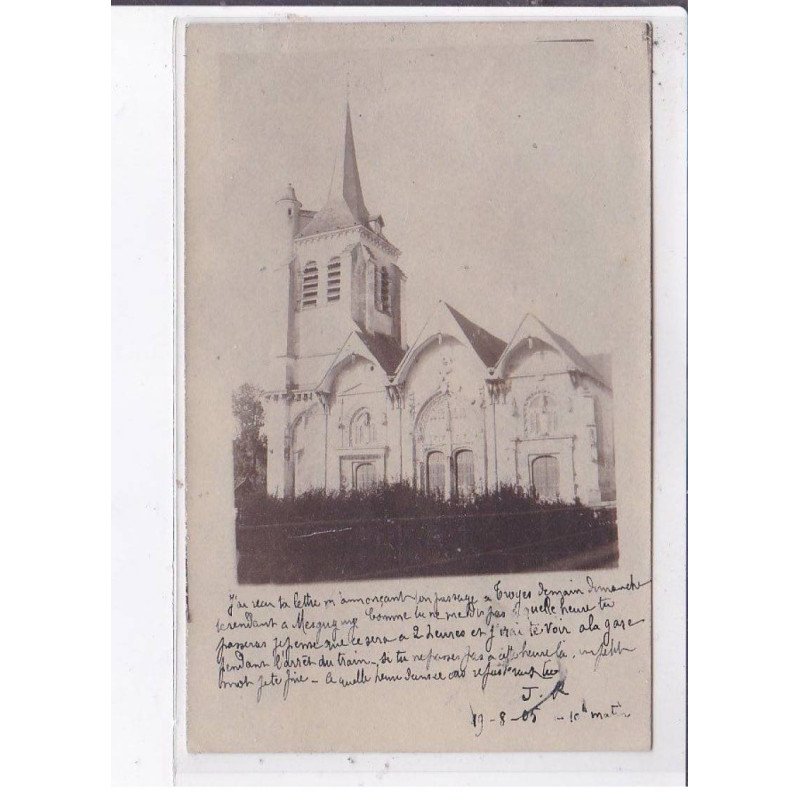 J'ai reçu ta lettre m'annonçant ton passage a Troyes demain dimanche
te rendant a Mesgrigny Comme tu ne me dis pas a quelle heure tu
passeras je pense que ce sera a 2 heures et j'irai te voir a la gare
pendant l'arrêt du train - si tu ne passes pas a cette heure là, un petit
mot je te prie - a quelle heure dans ce cas
J. R
19-8-05 - 10h matin